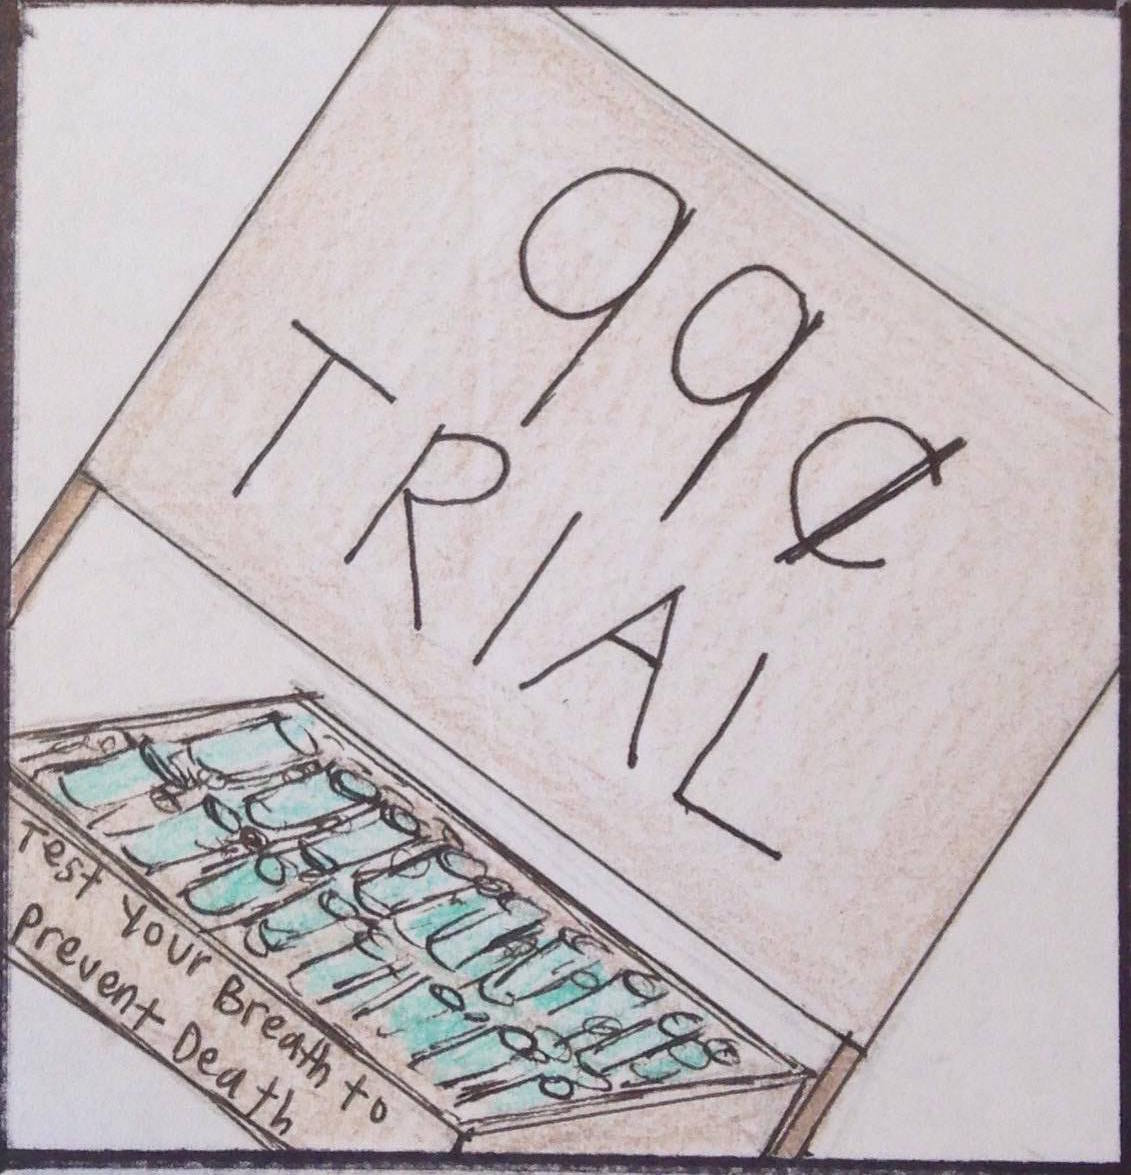 99¢
TRIAL
Test Your Breath to
Prevent Death